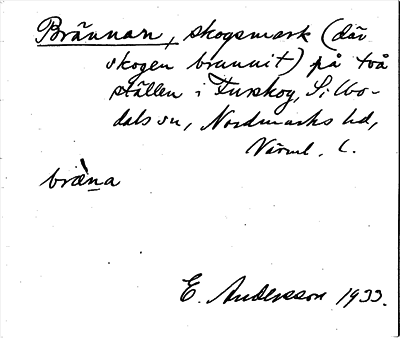 Brännan, skogsmark (där
skogen brunnit) på två
ställen i Furskog, Silbo-
dals sn, Nordmarks hd,
Värml. l.
bräna
E. Andersson 1933.